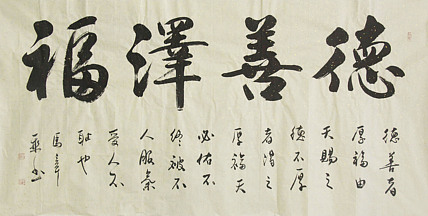 德善澤福
德善者
厚福由
天賜之
德不厚
者謂之
厚福天
必佑不
終破不
人服氣
受人不
耻也
書